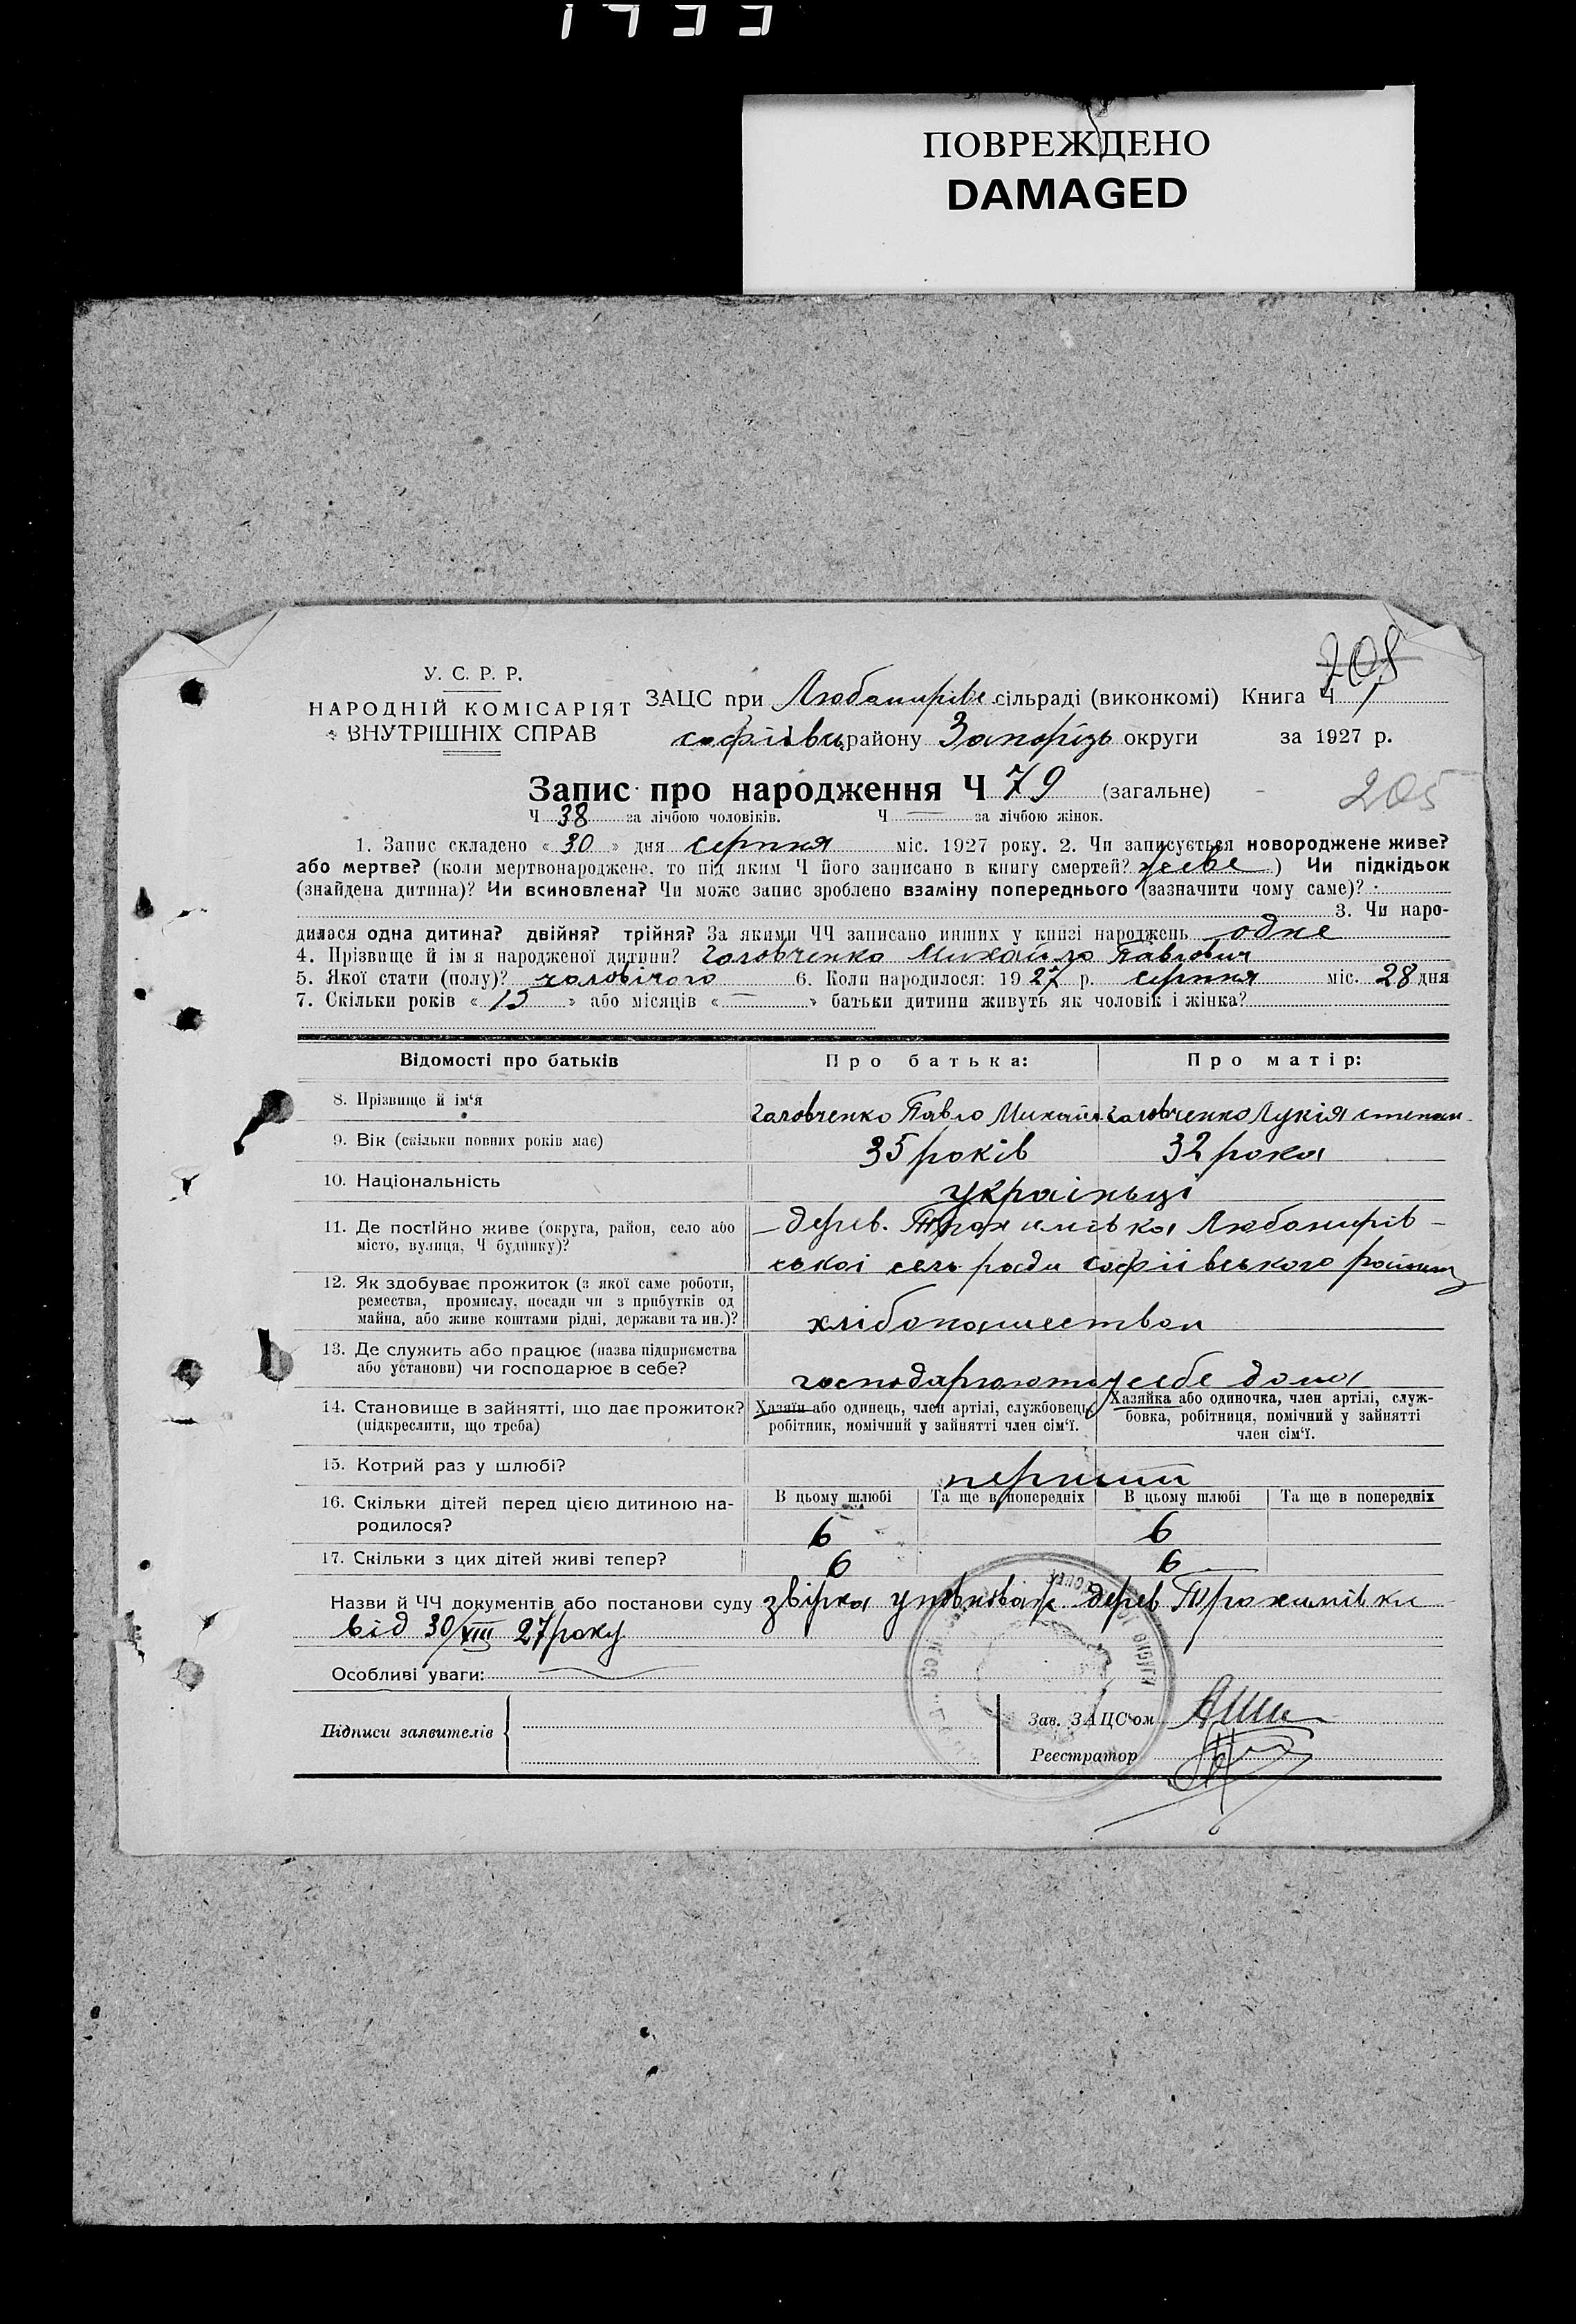 1933
ПОВРЕЖДЕНО
DAMAGED
208
У. С. Р. Р.
НАРОДНІЙ КОМІСАРІЯТ
ВНУТРІШНІХ СПРАВ
ЗАЦС при Любомирівс сільраді (виконкомі) Книга Ч 1
софіївсь району Запорізь округи за 1927 р.
Запис про народження Ч 79 (загальне)
205
Ч 38 за лічбою чоловіків. Ч — за лічбою жінок.
1. Запис складено « 30 » дня серпня міс. 1927 року. 2. Чи записується новороджене живе?
або мертве? (коли мертвонароджене, то під яким Ч його записано в книгу смертей? живе) Чи підкідьок
(знайдена дитина)? Чи всиновлена? Чи може запис зроблено взаміну попереднього (зазначити чому саме)?
3. Чи наро-
дилася одна дитина? двійня? трійня? За якими ЧЧ записано инших у книзі народжень одне
4. Прізвище й ім'я народженої дитини? Головченко Михайло Павлович
5. Якої стати (полу)? чоловічого 6. Коли народилося: 1927 р. серпня міс. 28 дня
7. Скільки років « 13 » або місяців « — » батьки дитини живуть як чоловік і жінка?
Відомості про батьків Про батька: Про матір:
8. Прізвище й ім'я Головченко Павло Михайл Головченко Лукія степан
9. Вік (скільки повних років має) 35 років 32 рока
10. Національність україньці
11. Де постійно живе (округа, район, село або
місто, вулиця, Ч будинку)?
дерев. Трохимівка Любомирів-
ської сель ради софіївського району
12. Як здобуває прожиток (з якої саме роботи,
ремества, промислу, посади чи з прибутків од
майна, або живе коштами рідні, держави та ин.)?
хлібопашеством
13. Де служить або працює (назва підприємства
або установи) чи господарює в себе?
господарюють у себе дома
14. Становище в зайнятті, що дає прожиток?
(підкреслити, що треба)
Хазяїн або одинець, член артілі, службовець,
робітник, помічний у зайнятті член сім'ї.
Хазяйка або одиночка, член артілі, служ-
бовка, робітниця, помічний у зайнятті
член сім'ї.
15. Котрий раз у шлюбі? перший
16. Скільки дітей перед цією дитиною на-
родилося?
В цьому шлюбі Та ще в попередніх В цьому шлюбі Та ще в попередніх
6 6
17. Скільки з цих дітей живі тепер? 6 6
Назви й ЧЧ документів або постанови суду звірка уповноваж дерев Трохимівки
від 30/VIII 27 року
Особливі уваги:
Підписи заявителів
Зав. ЗАЦС'ом
Реєстратор